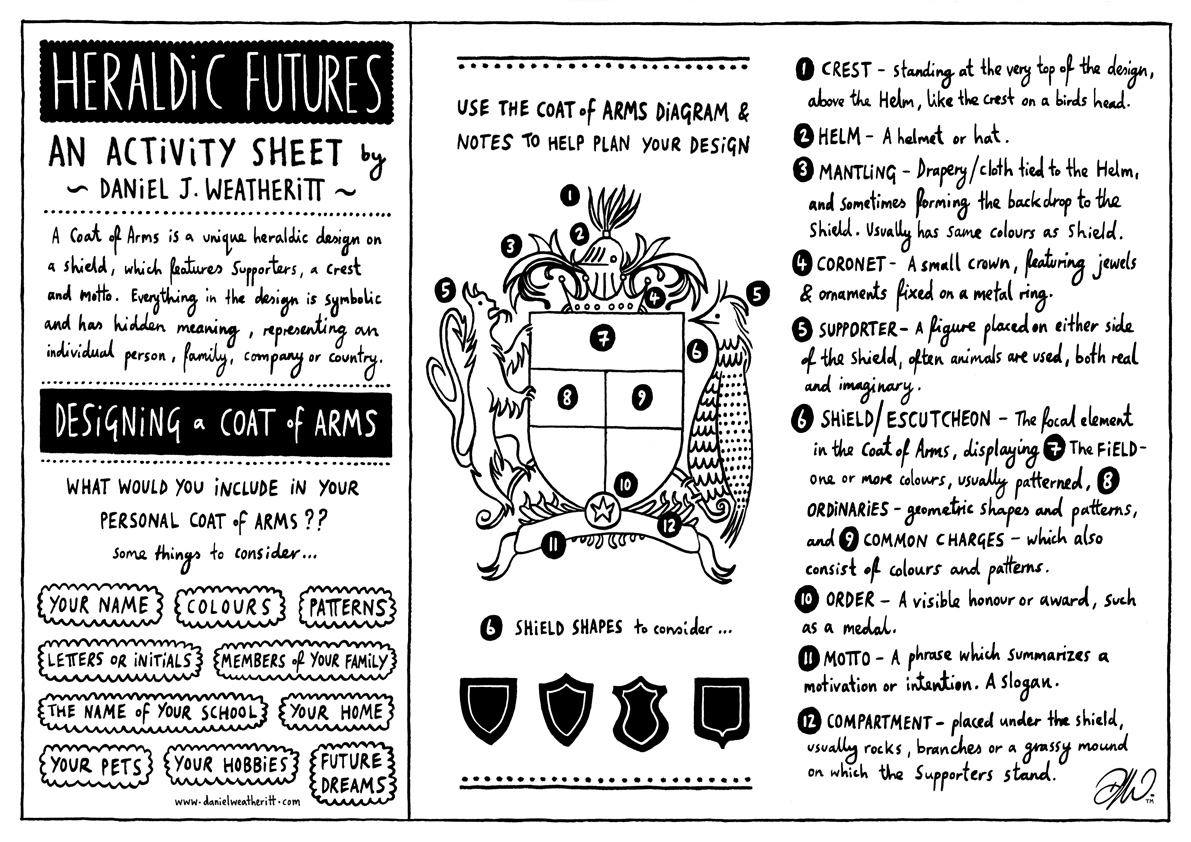 HERALDiC FUTURES
AN ACTiViTY SHEET by
~ DANiEL J. WEATHERiTT ~
A Coat of Arms is a unique heraldic design on
a shield, which features Supporters, a crest
and motto. Everything in the design is symbolic
and has hidden meaning, representing an
individual person, family, company or country.
DESiGNiNG a COAT of ARMS
WHAT WOULD YOU iNCLUDE iN YOUR
PERSONAL COAT of ARMS ??
Some things to consider...
YOUR NAME COLOURS PATTERNS
LETTERS OR iNiTiALS MEMBERS of YOUR FAMiLY
THE NAME of YOUR SCHOOL YOUR HOME
YOUR PETS YOUR HOBBiES FUTURE
DREAMS
www.danielweatheritt.com
USE THE COAT of ARMS DiAGRAM &
NOTES TO HELP PLAN YOUR DESiGN
1
2
3
4
5 5
6
7
8 9
10
11
12
6 SHiELD SHAPES to consider ...
1 CREST - Standing at the very top of the design,
above the Helm, like the crest on a birds head.
2 HELM - A helmet or hat.
3 MANTLiNG - Drapery/cloth tied to the Helm,
and sometimes forming the backdrop to the
Shield. Usually has same colours as Shield.
4 CORONET - A small crown, featuring jewels
& ornaments fixed on a metal ring.
5 SUPPORTER - A figure placed on either side
of the Shield, often animals are used, both real
and imaginary.
6 SHiELD/ESCUTCHEON - The focal element
in the Coat of Arms, displaying 7 The FiELD -
one or more colours, usually patterned, 8
ORDiNARiES - geometric shapes and patterns,
and 9 COMMON CHARGES - which also
consist of colours and patterns.
10 ORDER - A visible honour or award, such
as a medal.
11 MOTTO - A phrase which summarizes a
motivation or intention. A slogan.
12 COMPARTMENT - placed under the shield,
usually rocks, branches or a grassy mound
on which the Supporters stand.
DJW.
TM